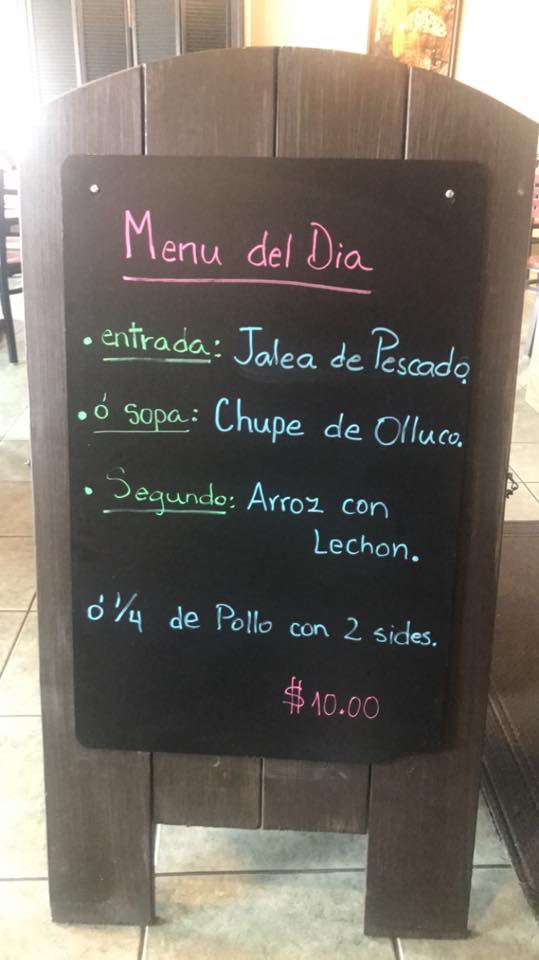 Menu del Dia
• entrada: Jalea de Pescado.
• ó sopa: Chupe de Olluco.
• Segundo: Arroz con
Lechon.
ó 1/4 de Pollo con 2 sides.
$10.00